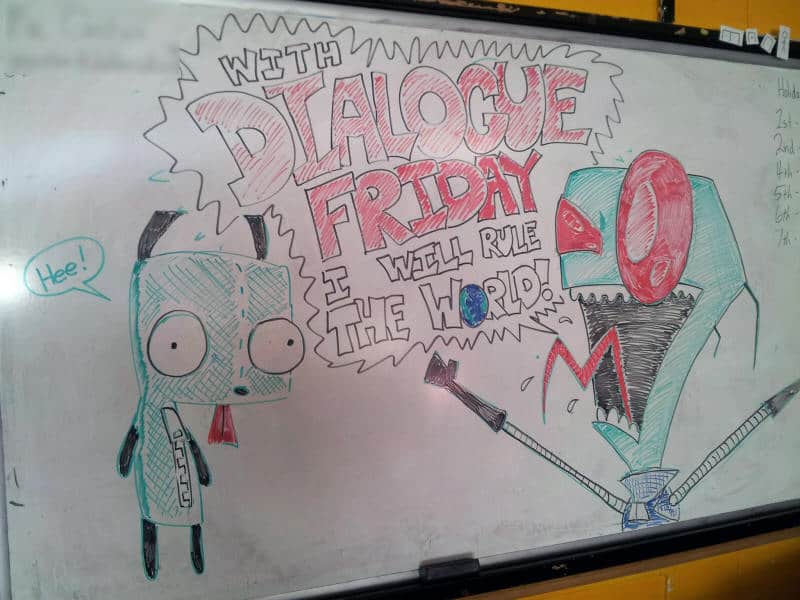 WITH
DIALOGUE
FRIDAY
I WILL RULE
THE WORLD!
Hee!
2st -
2nd -
4th -
5th -
6th -
7th -